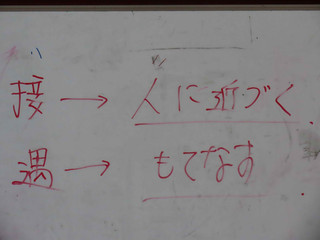 接 → 人に近づく
遇 → もてなす